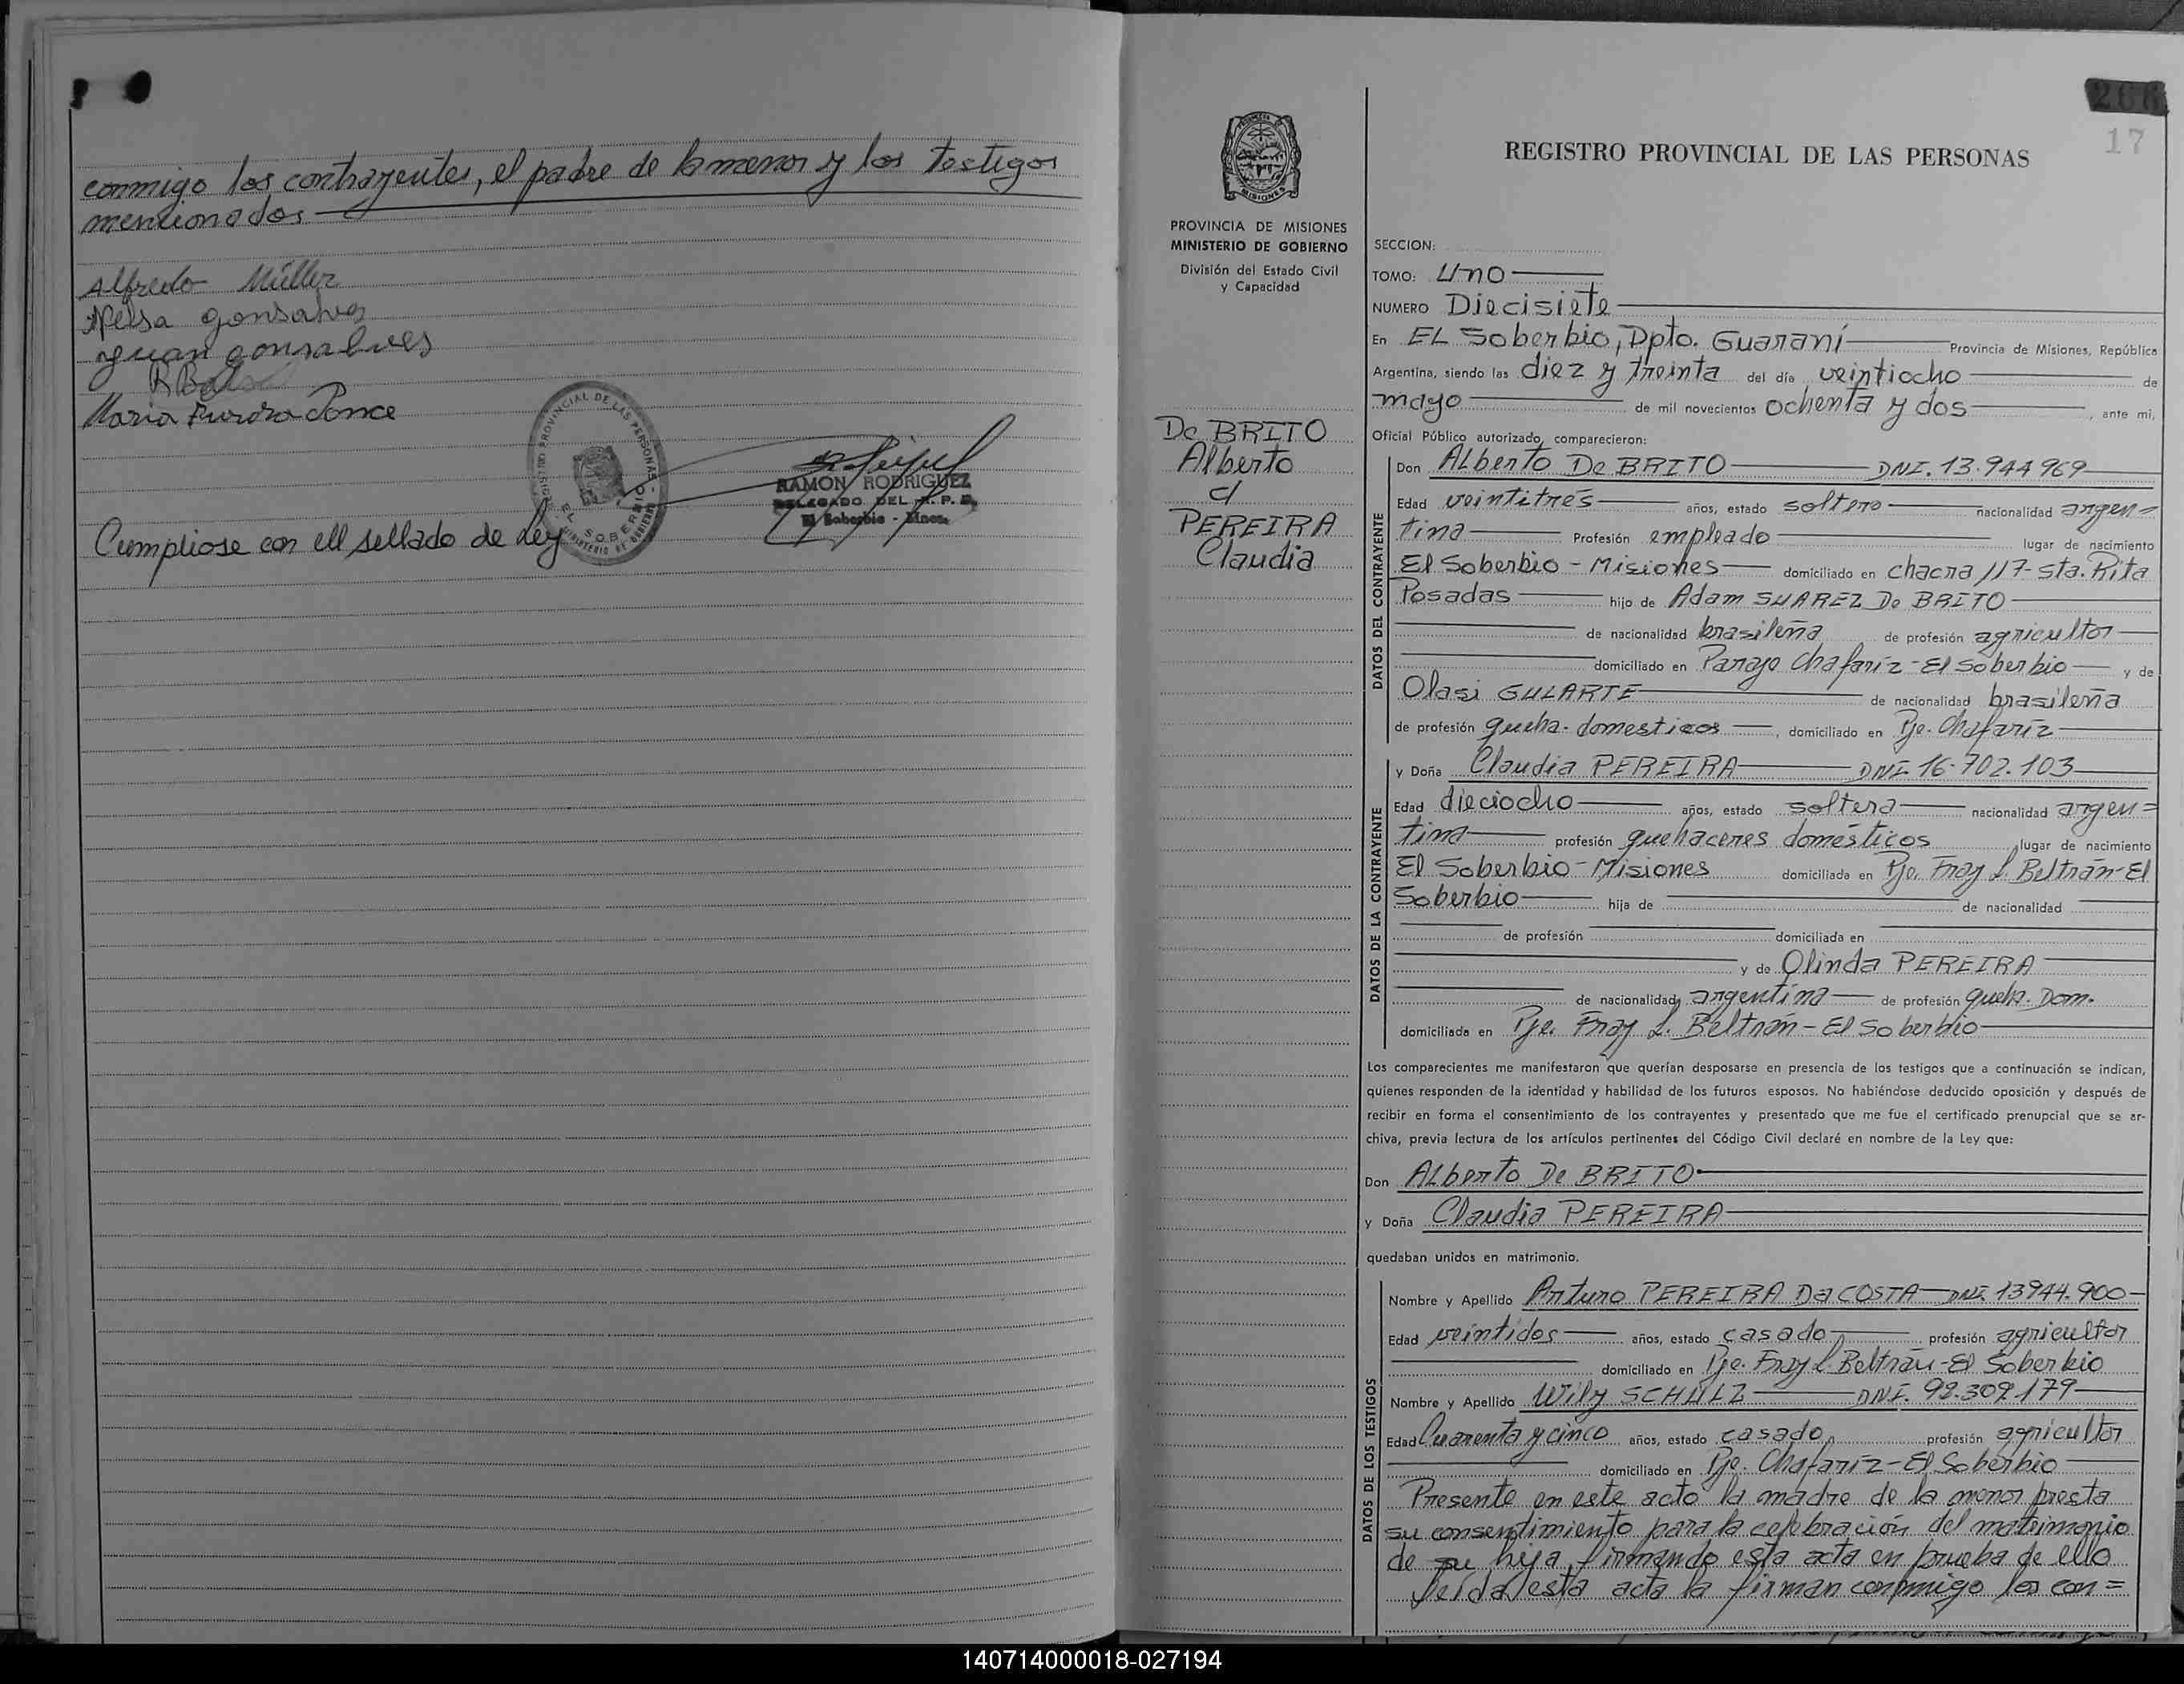 conmigo los contrayentes, el padre de la menor y los testigos
mencionados
Alfredo Müller
Nelsa gonsalves
Juan gonsalves
Maria Aurora Ponce
REGISTRO PROVINCIAL DE LAS PERSONAS
EL SOBERBIO
MINISTERIO DE GOBIERNO
RAMON RODRIGUEZ
DELEGADO DEL R. P. P.
El Soberbio - Mnes.
Cumpliose con ell sellado de Ley
266
17
PROVINCIA DE MISIONES
MINISTERIO DE GOBIERNO
División del Estado Civil
y Capacidad
De BRITO
Alberto
c/
PEREIRA
Claudia
REGISTRO PROVINCIAL DE LAS PERSONAS
SECCION:
TOMO: Uno
NUMERO Diecisiete
En EL Soberbio, Dpto. Guaraní Provincia de Misiones, República
Argentina, siendo las diez y treinta del día veintiocho de
mayo de mil novecientos ochenta y dos, ante mi,
Oficial Público autorizado, comparecieron:
DATOS DEL CONTRAYENTE
Don Alberto De BRITO DNI. 13.944969
Edad veintitrés años, estado soltero nacionalidad argen=
tina Profesión empleado lugar de nacimiento
El Soberbio - Misiones domiciliado en chacra 117- sta. Rita
Posadas hijo de Adam SUAREZ De BRITO
de nacionalidad brasileña de profesión agricultor
domiciliado en Paraje Chafaríz - El Soberbio y de
Olasi GULARTE de nacionalidad brasileña
de profesión queha. domesticos, domiciliado en Pje. Chafaríz
DATOS DE LA CONTRAYENTE
y Doña Claudia PEREIRA DNI 16.702.103
Edad dieciocho años, estado soltera nacionalidad argen=
tina profesión quehaceres domésticos lugar de nacimiento
El Soberbio - Misiones domiciliada en Pje. Fray L. Beltrán-El
Soberbio hija de de nacionalidad
de profesión domiciliada en
y de Olinda PEREIRA
de nacionalidad argentina de profesión queha. Dom.
domiciliada en Pje. Fray L. Beltrán - El Soberbio
Los comparecientes me manifestaron que querían desposarse en presencia de los testigos que a continuación se indican,
quienes responden de la identidad y habilidad de los futuros esposos. No habiéndose deducido oposición y después de
recibir en forma el consentimiento de los contrayentes y presentado que me fue el certificado prenupcial que se ar-
chiva, previa lectura de los artículos pertinentes del Código Civil declaré en nombre de la Ley que:
Don Alberto De BRITO
y Doña Claudia PEREIRA
quedaban unidos en matrimonio.
DATOS DE LOS TESTIGOS
Nombre y Apellido Arturo PEREIRA Da COSTA DNI. 13944.900
Edad veintidos años, estado casado profesión agricultor
domiciliado en Pje. Fray L. Beltrán-El Soberbio
Nombre y Apellido Wily SCHULZ DNI. 92.309.179
Edad Cuarenta y cinco años, estado casado profesión agricultor
domiciliado en Pje. Chafaríz - El Soberbio
Presente en este acto la madre de la menor presta
su consentimiento para la celebración del matrimonio
de su hija firmando esta acta en prueba de ello
leida esta acta la firman conmigo los con=
140714000018-027194